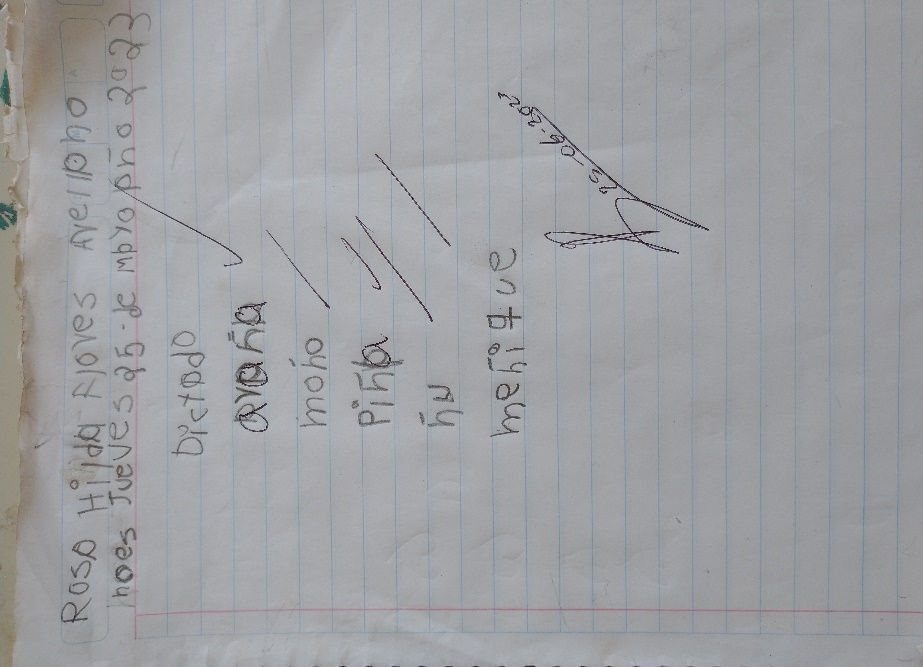 Rosa Hilda Flores Avelino
hoes Jueves 25 de mayo año 2023
Dictado
araña
moño
Piña
ñu
meñique